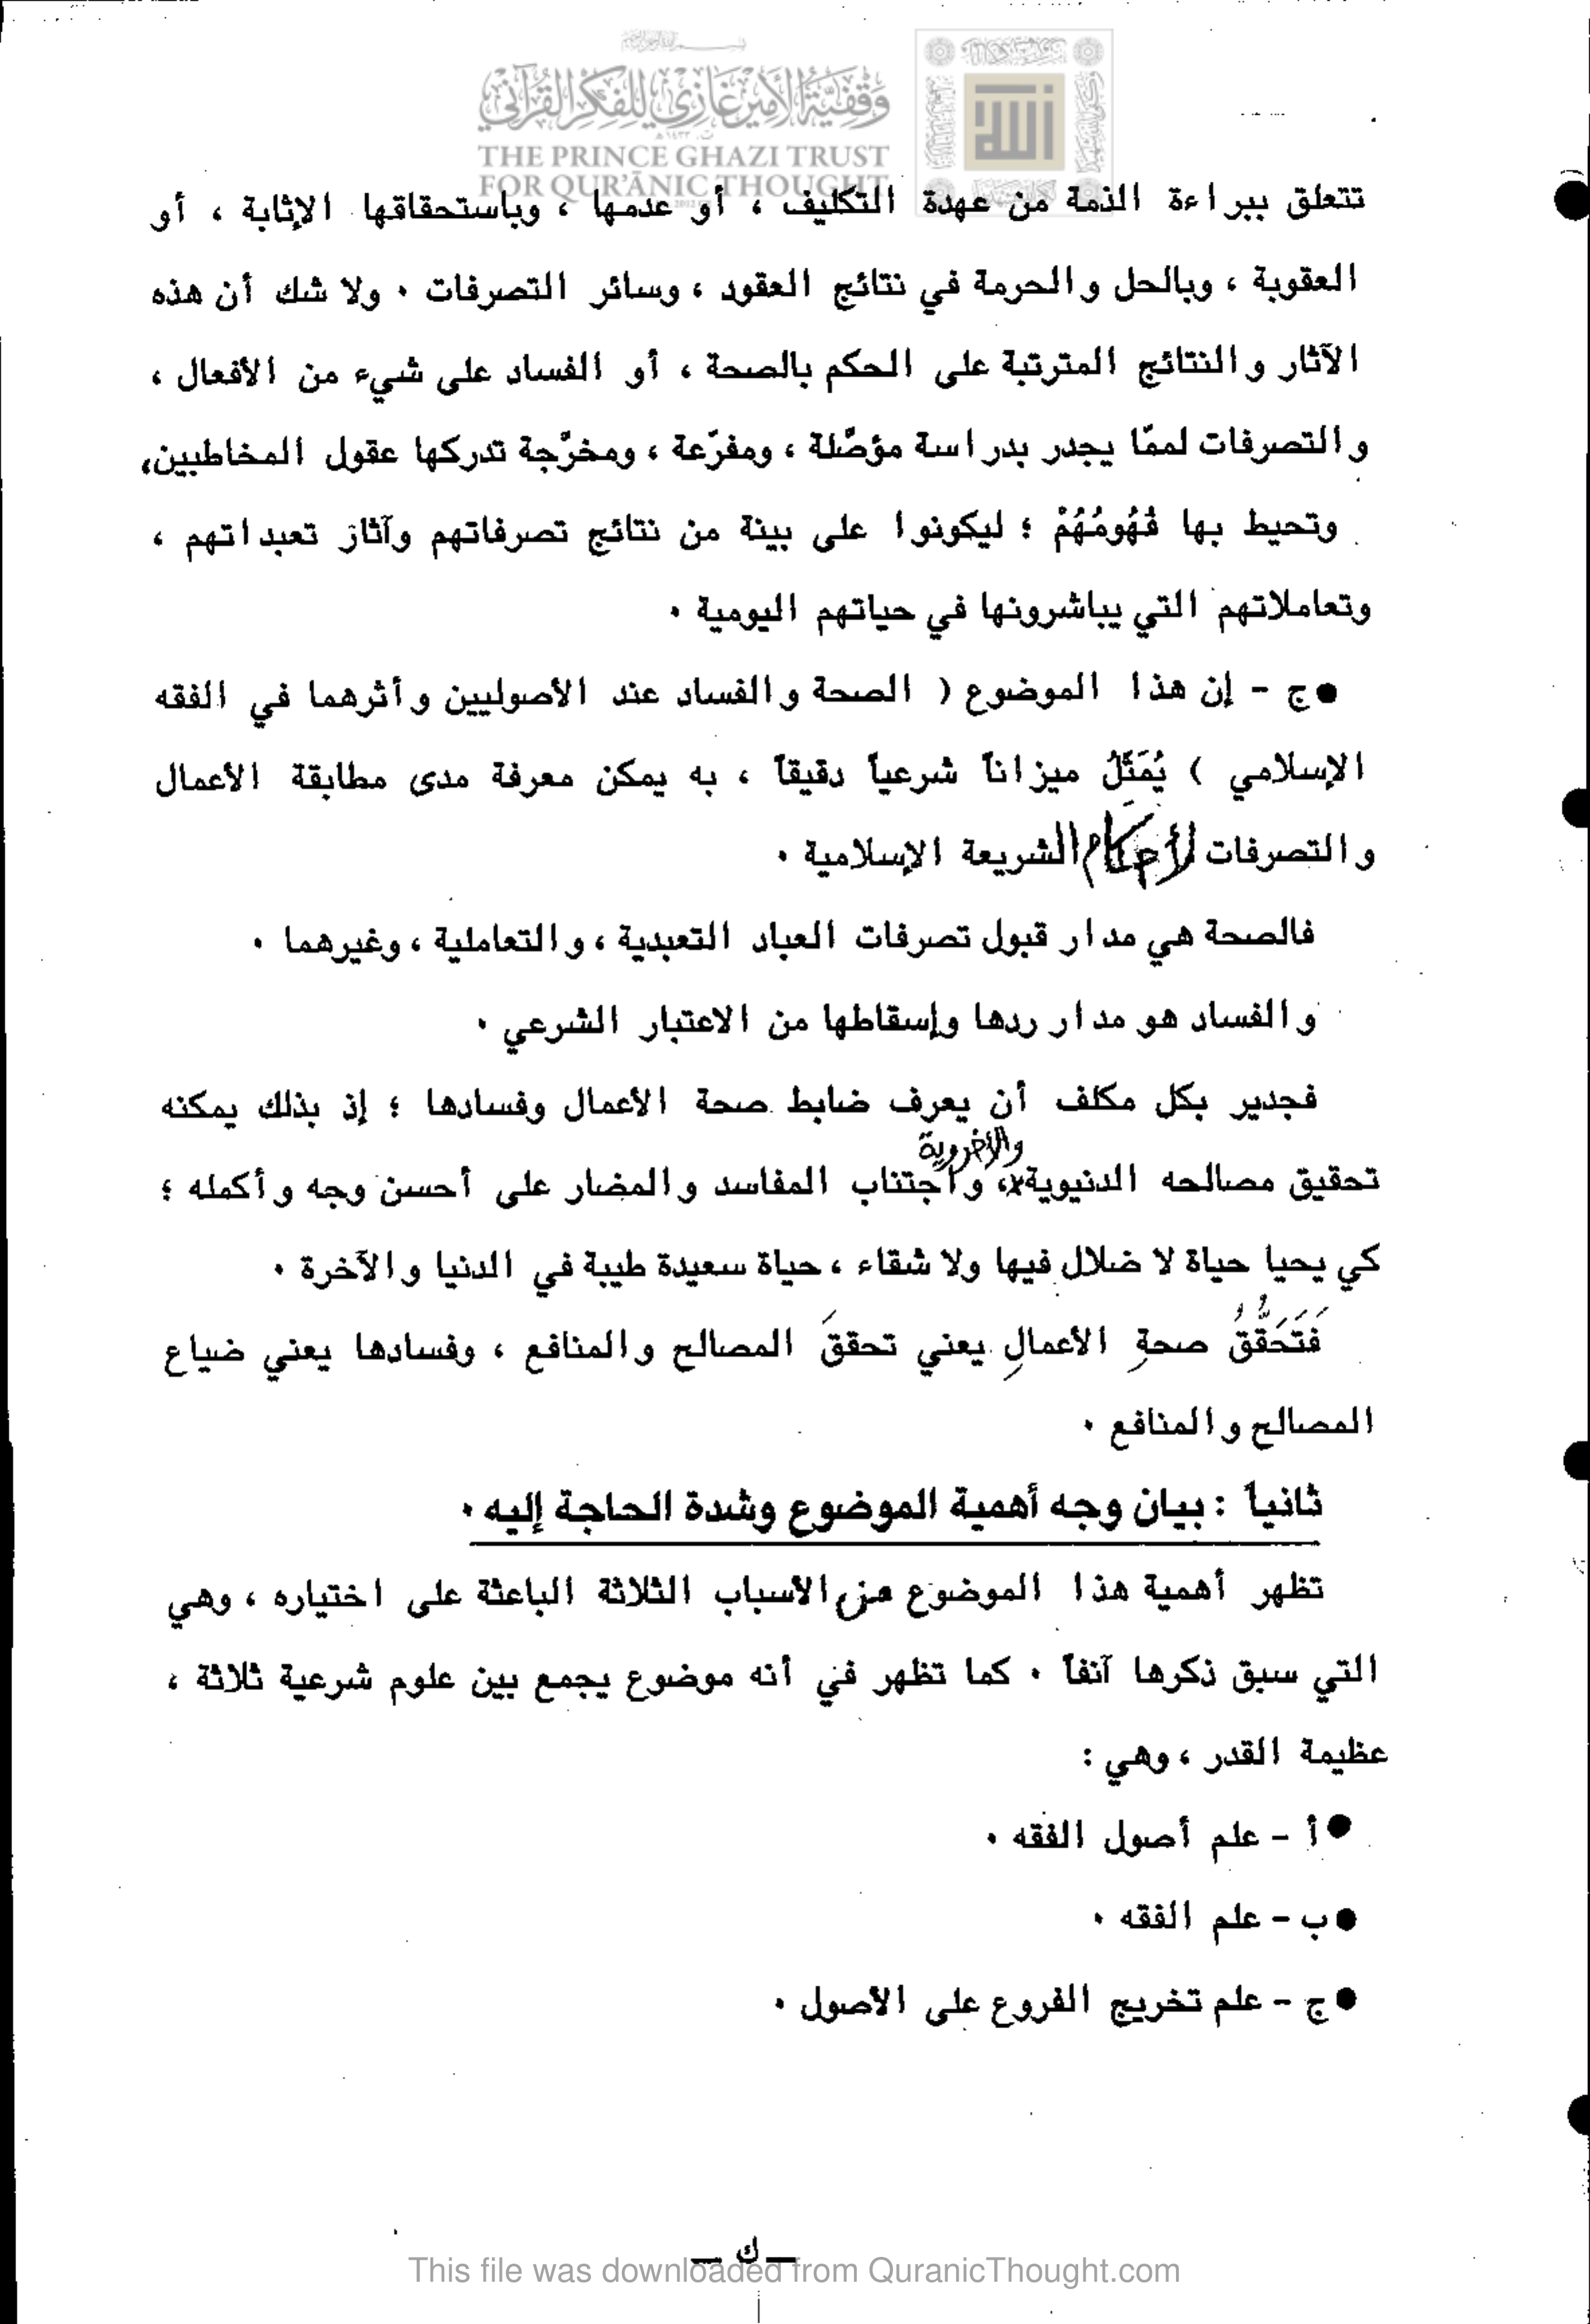 وقفية الأمير غازي للفكر القرآني
THE PRINCE GHAZI TRUST
FOR QUR'ĀNIC THOUGHT
تتعلق ببراءة الذمة من عهدة التكليف ، أو عدمها ، وباستحقاقها الإثابة ، أو
العقوبة ، وبالحل والحرمة في نتائج العقود ، وسائر التصرفات . ولا شك أن هذه
الآثار والنتائج المترتبة على الحكم بالصحة ، أو الفساد على شيء من الأفعال ،
والتصرفات لممّا يجدر بدراسة مؤصّلة ، ومفرّعة ، ومخرّجة تدركها عقول المخاطبين،
وتحيط بها فُهُومُهُمْ ؛ ليكونوا على بينة من نتائج تصرفاتهم وآثار تعبداتهم ،
وتعاملاتهم التي يباشرونها في حياتهم اليومية .
● ج - إن هذا الموضوع ( الصحة والفساد عند الأصوليين وأثرهما في الفقه
الإسلامي ) يُمَثِّلُ ميزاناً شرعياً دقيقاً ، به يمكن معرفة مدى مطابقة الأعمال
والتصرفات لأحكام الشريعة الإسلامية .
فالصحة هي مدار قبول تصرفات العباد التعبدية ، والتعاملية ، وغيرهما .
والفساد هو مدار ردها وإسقاطها من الاعتبار الشرعي .
فجدير بكل مكلف أن يعرف ضابط صحة الأعمال وفسادها ؛ إذ بذلك يمكنه
والأخروية
تحقيق مصالحه الدنيوية× ، واجتناب المفاسد والمضار على أحسن وجه وأكمله ؛
كي يحيا حياة لا ضلال فيها ولا شقاء ، حياة سعيدة طيبة في الدنيا والآخرة .
فَتَحَقُّقُ صحةِ الأعمالِ يعني تحققَ المصالح والمنافع ، وفسادها يعني ضياع
المصالح والمنافع .
ثانياً : بيان وجه أهمية الموضوع وشدة الحاجة إليه .
تظهر أهمية هذا الموضوع من الأسباب الثلاثة الباعثة على اختياره ، وهي
التي سبق ذكرها آنفاً . كما تظهر في أنه موضوع يجمع بين علوم شرعية ثلاثة ،
عظيمة القدر ، وهي :
● أ - علم أصول الفقه .
● ب - علم الفقه .
● ج - علم تخريج الفروع على الأصول .
— ك —
This file was downloaded from QuranicThought.com